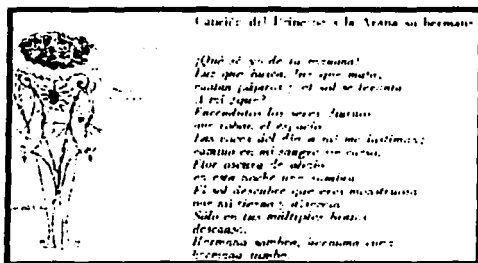 Canción del Príncipe a la Araña su hermana
¡Qué sé yo de la mañana!
Luz que busca, luz que mata,
cantan pájaros y el sol se levanta
A mí ¿que?
Encendidos los seres diurnos
que roban el espacio
Las voces del día a mí me lastiman;
camina en mi sangre
Flor oscura de
en esta noche una sombra
El sol descubre que eres monstruosa
por mi tierna y
Sólo en tus múltiples brazos
descanso.
Hermana sombra, hermana
hermana tumba